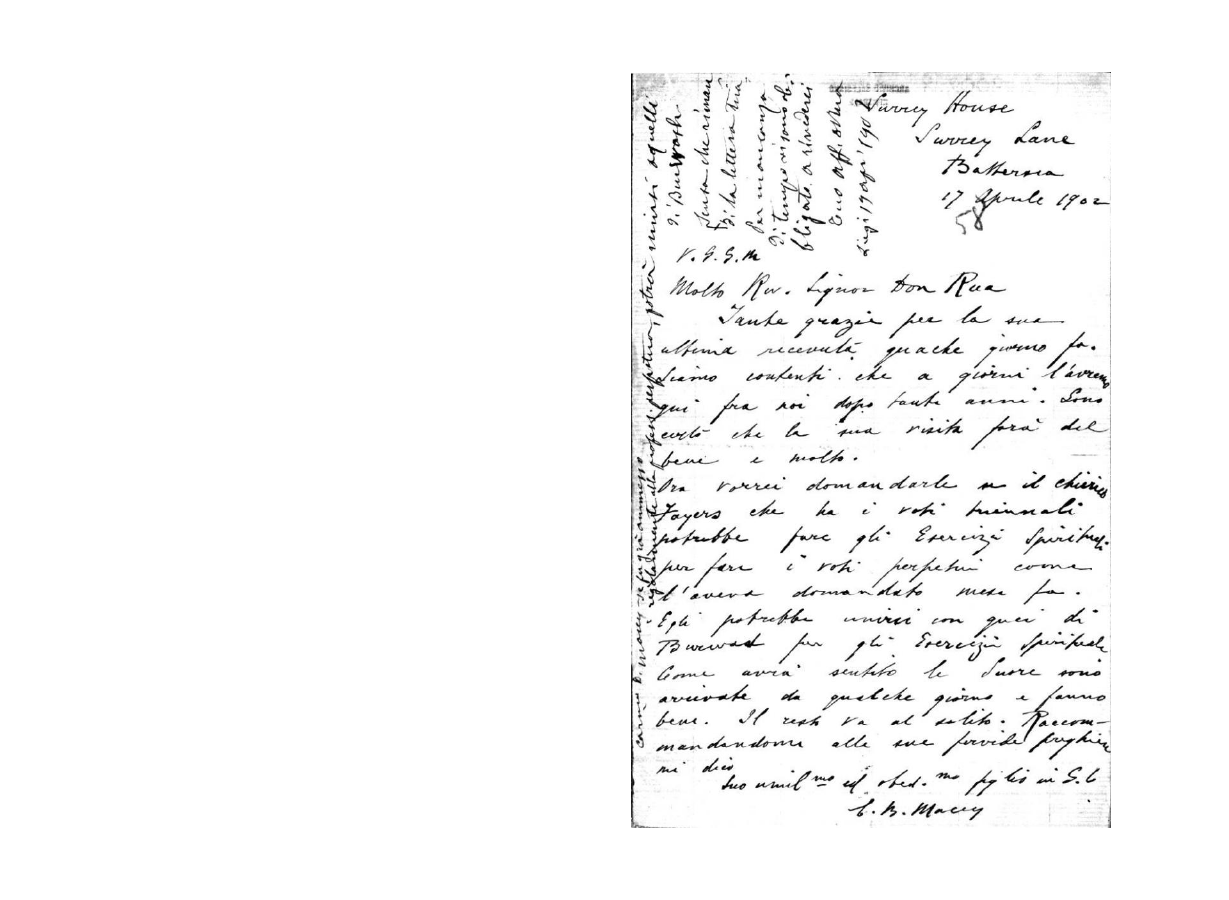 Surrey House
Surrey Lane
Battersea
17 Aprile 1902
58
V. G. G. M
Molto Rev. Signor Don Rua
Tante grazie per la sua
ultima recevuta quache giorno fa.
Siamo contenti che a giorni l'avremo
qui fra noi dopo tante anni. Sono
certo che la sua visita farà del
bene e molto.
Ora vorrei domandarle se il chierico
Fayers che ha i voti triennali
potrebbe fare gli Esercizi Spirituali
per fare i voti perpetui come
l'aveva domandato mese fa.
Egli potrebbe unirsi con quei di
Burwash per gli Esercizi Spirituali
Come avrà sentito le Suore sono
arrivate da qualche giorno e fanno
bene. Il resto va al solito. Raccom-
mandandomi alle sue fervide preghiere
mi dico
Suo umil.mo ed obed.mo figlio in G. C
C. B. Macey
Carino D. Macey se fu già ammesso
regolarmente alla profess. perpetua, potrà unirsi a quelli
di Burwash
Senza che riman
di la lettera tua
Per mancanza
di tempo vi sono ob.
bligato a rivederci
Tuo aff. a Rua
Luigi 19 apr. 1902